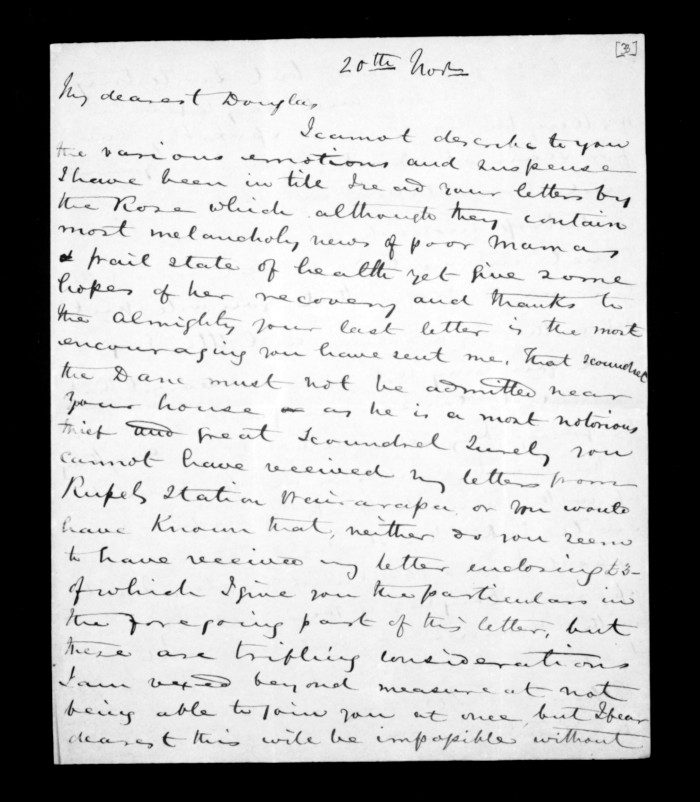 [3]
20th Novr
My dearest Douglas
I cannot describe to you
the various emotions and suspense
I have been in till I read your letters by
the Rose which although they contain
most melancholy news of poor Mamas
frail state of health yet give some
hopes of her recovery and thanks to
the Almighty your last letter is the most
encouraging you have sent me, That scoundrel
the Dane must not be admitted near
your house as he is a most notorious
thief and great Scoundrel Surely you
cannot have received my letters from
Station Wairarapa or you would
have Known that, neither do you seem
to have received my letter enclosing £3-
of which I give you the particulars in
the foregoing part of this letter, but
these are trifling considerations
I am vexed beyond measure at not
being able to join you at once, but I fear
dearest this will be impossible without